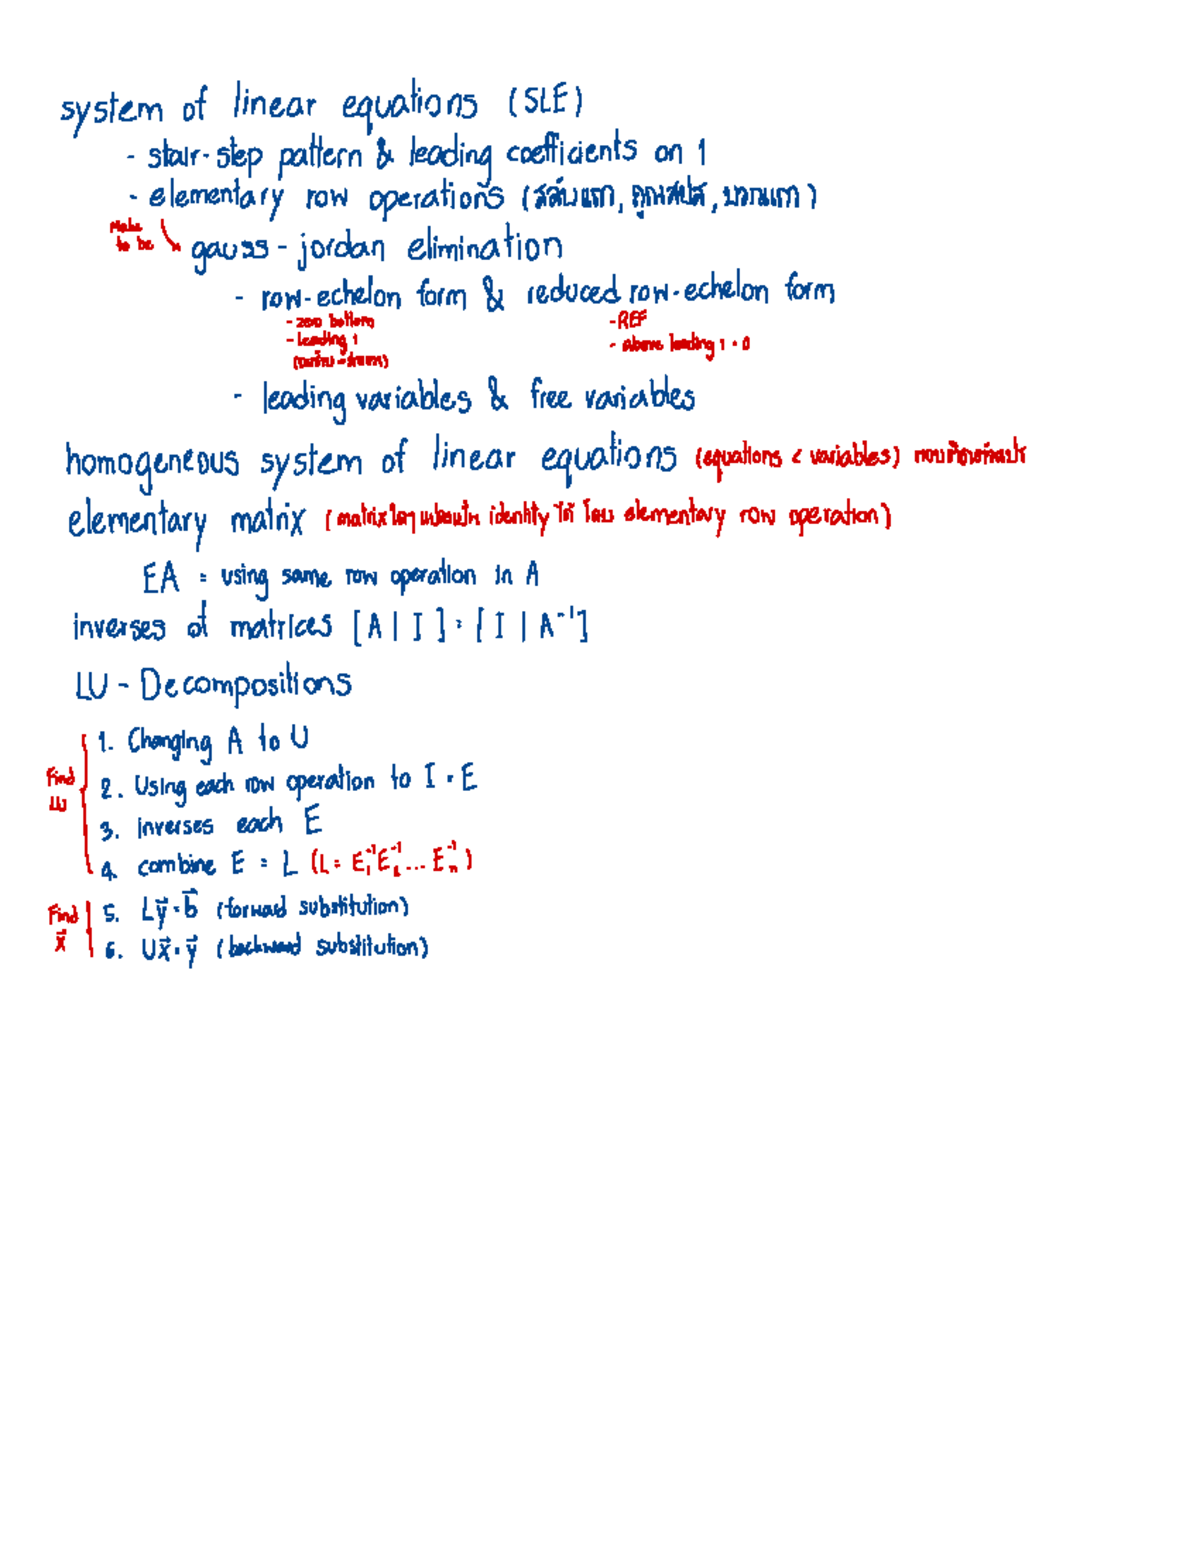 system of linear equations (SLE)
- stair-step pattern & leading coefficients on 1
- elementary row operations (สลับแถว, คูณสเกลาร์, บวกแถว)
Make to be
gauss - jordan elimination
- row-echelon form & reduced row-echelon form
- zero bottom
- leading 1
- REF
- Above leading 1 = 0
- leading variables & free variables
homogeneous system of linear equations (equations < variables)
elementary matrix (matrix identity ได้ โดย elementary row operation)
EA = using same row operation in A
inverses of matrices [A | I] = [I | A⁻¹]
LU - Decompositions
Find LU
1. Changing A to U
2. Using each row operation to I = E
3. inverses each E
4. combine E = L (L = E₁⁻¹E₂⁻¹...Eₙ⁻¹)
Find x⃗
5. Ly⃗ = b⃗ (forward substitution)
6. Ux⃗ = y⃗ (backward substitution)